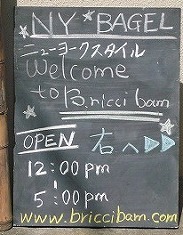 NY★BAGEL
ニューヨークスタイル
Welcome
to Bricci bam
OPEN 右へ▷▷
12:00pm
≀
5:00pm
www.briccibam.com